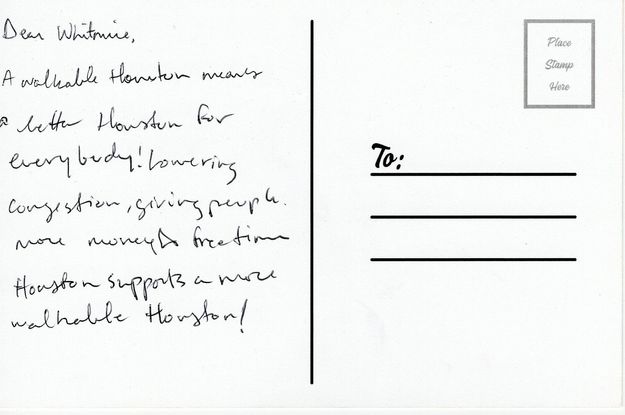 Dear Whitmire,
A walkable Houston means
a better Houston for
everybody! Lowering
congestion, giving people
more money & free time
Houston supports a more
walkable Houston!
Place
Stamp
Here
To: